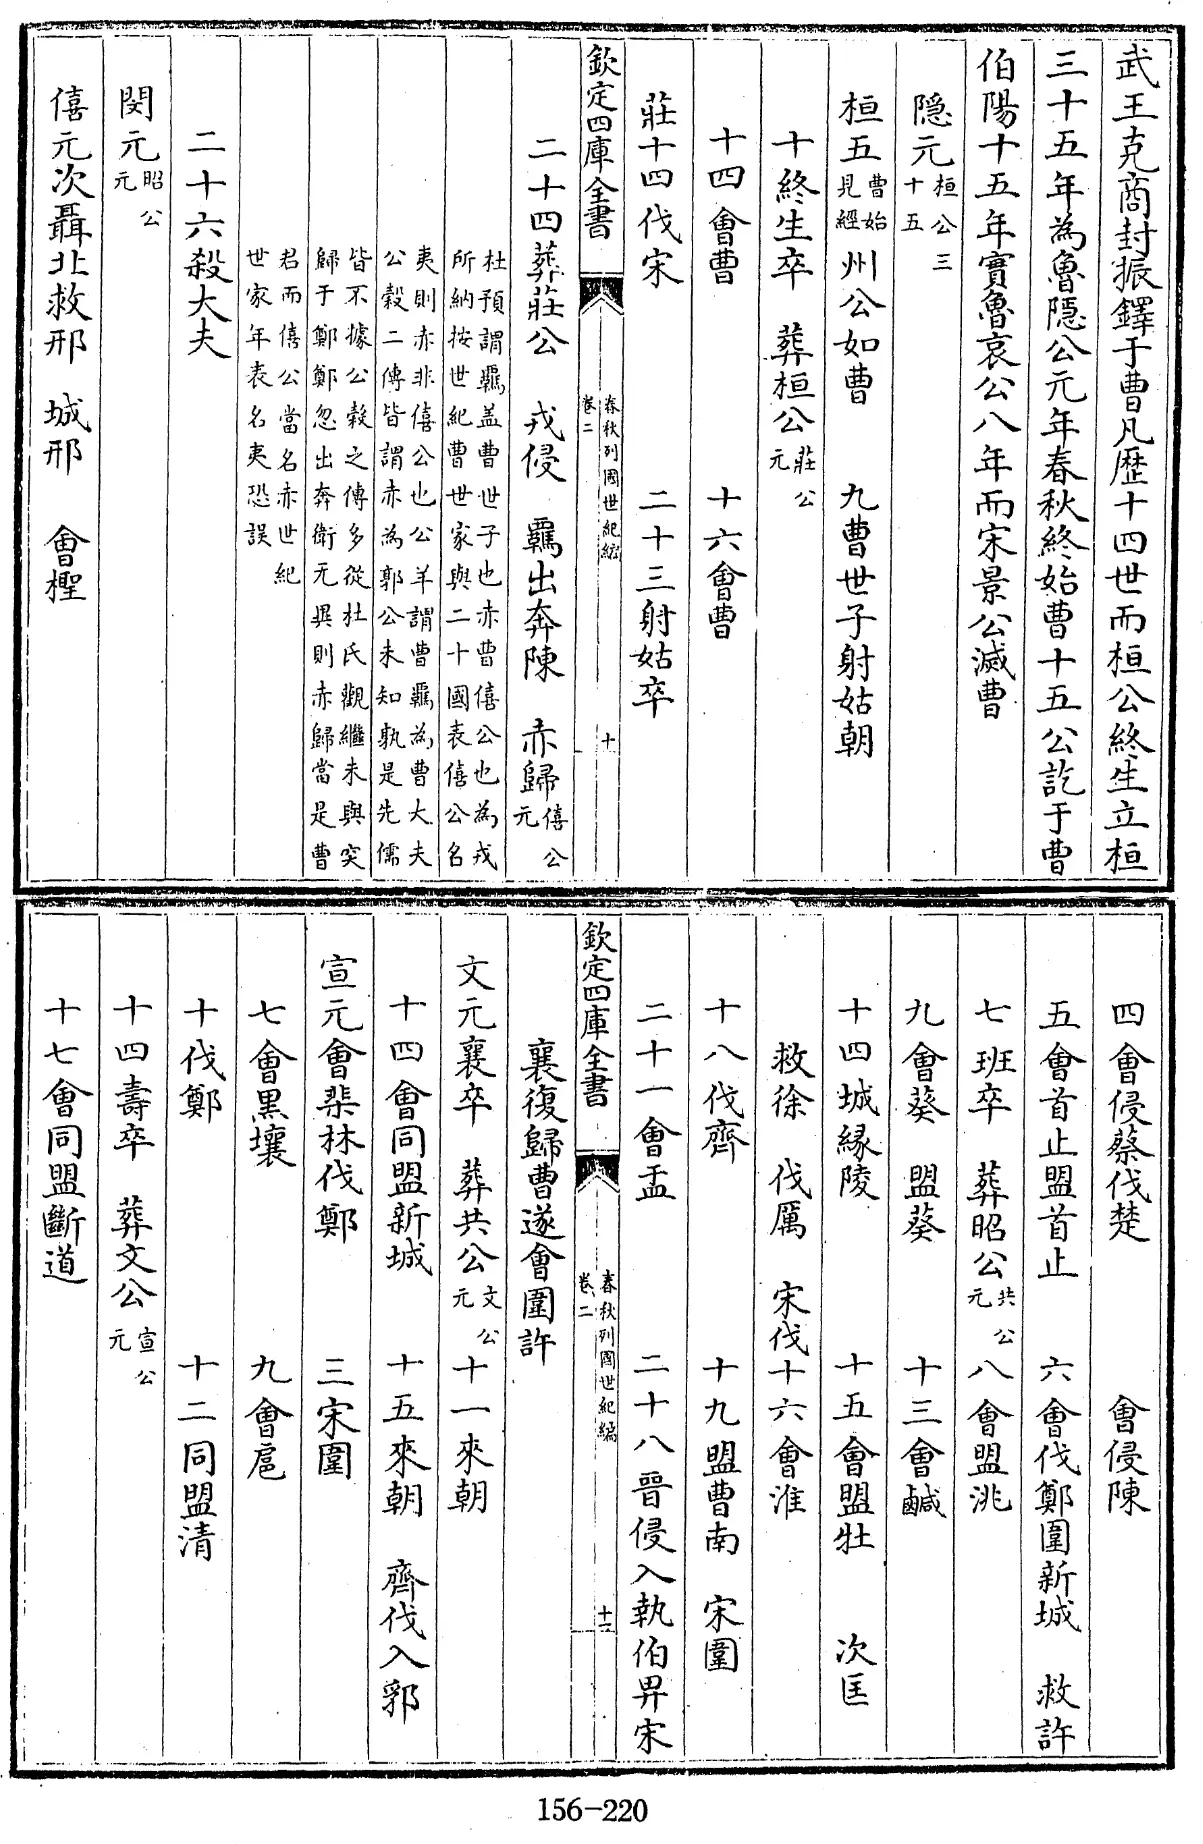 武王克商封振鐸于曹凡歴十四世而桓公終生立桓
三十五年為魯隠公元年春秋終始曹十五公訖于曹
伯陽十五年實魯哀公八年而宋景公滅曹
隠元桓公三十五
桓五曹始見經 州公如曹 九曹世子射姑朝
十終生卒 葬桓公莊公元
十四會曹 十六會曹
莊十四伐宋 二十三射姑卒
欽定四庫全書 春秋列國世紀編 卷二 十
二十四葬莊公 戎侵 羈出奔陳 赤歸僖公元
杜預謂羈盖曹世子也赤曹僖公也為戎
所納按世紀曹世家與二十國表僖公名
夷則赤非僖公也公羊謂曹羈為曹大夫
公穀二傳皆謂赤為郭公未知孰是先儒
皆不據公穀之傳多從杜氏觀繼未與突
歸于鄭鄭忽出奔衛元異則赤歸當是曹
君而僖公當名赤世紀
世家年表名夷恐誤
二十六殺大夫
閔元昭公元
僖元次聶北救邢 城邢 會檉
四會侵蔡伐楚 會侵陳
五會首止盟首止 六會伐鄭圍新城 救許
七班卒 葬昭公共公元 八會盟洮
九會葵 盟葵 十三會鹹
十四城緣陵 十五會盟牡 次匡
救徐 伐厲 宋伐十六會淮
十八伐齊 十九盟曹南 宋圍
二十一會盂 二十八晉侵入執伯畀宋
欽定四庫全書 春秋列國世紀編 卷二 十一
襄復歸曹遂會圍許
文元襄卒 葬共公文公元 十一來朝
十四會同盟新城 十五來朝 齊伐入郛
宣元會棐林伐鄭 三宋圍
七會黒壤 九會扈
十伐鄭 十二同盟清
十四壽卒 葬文公宣公元
十七會同盟斷道
156-220